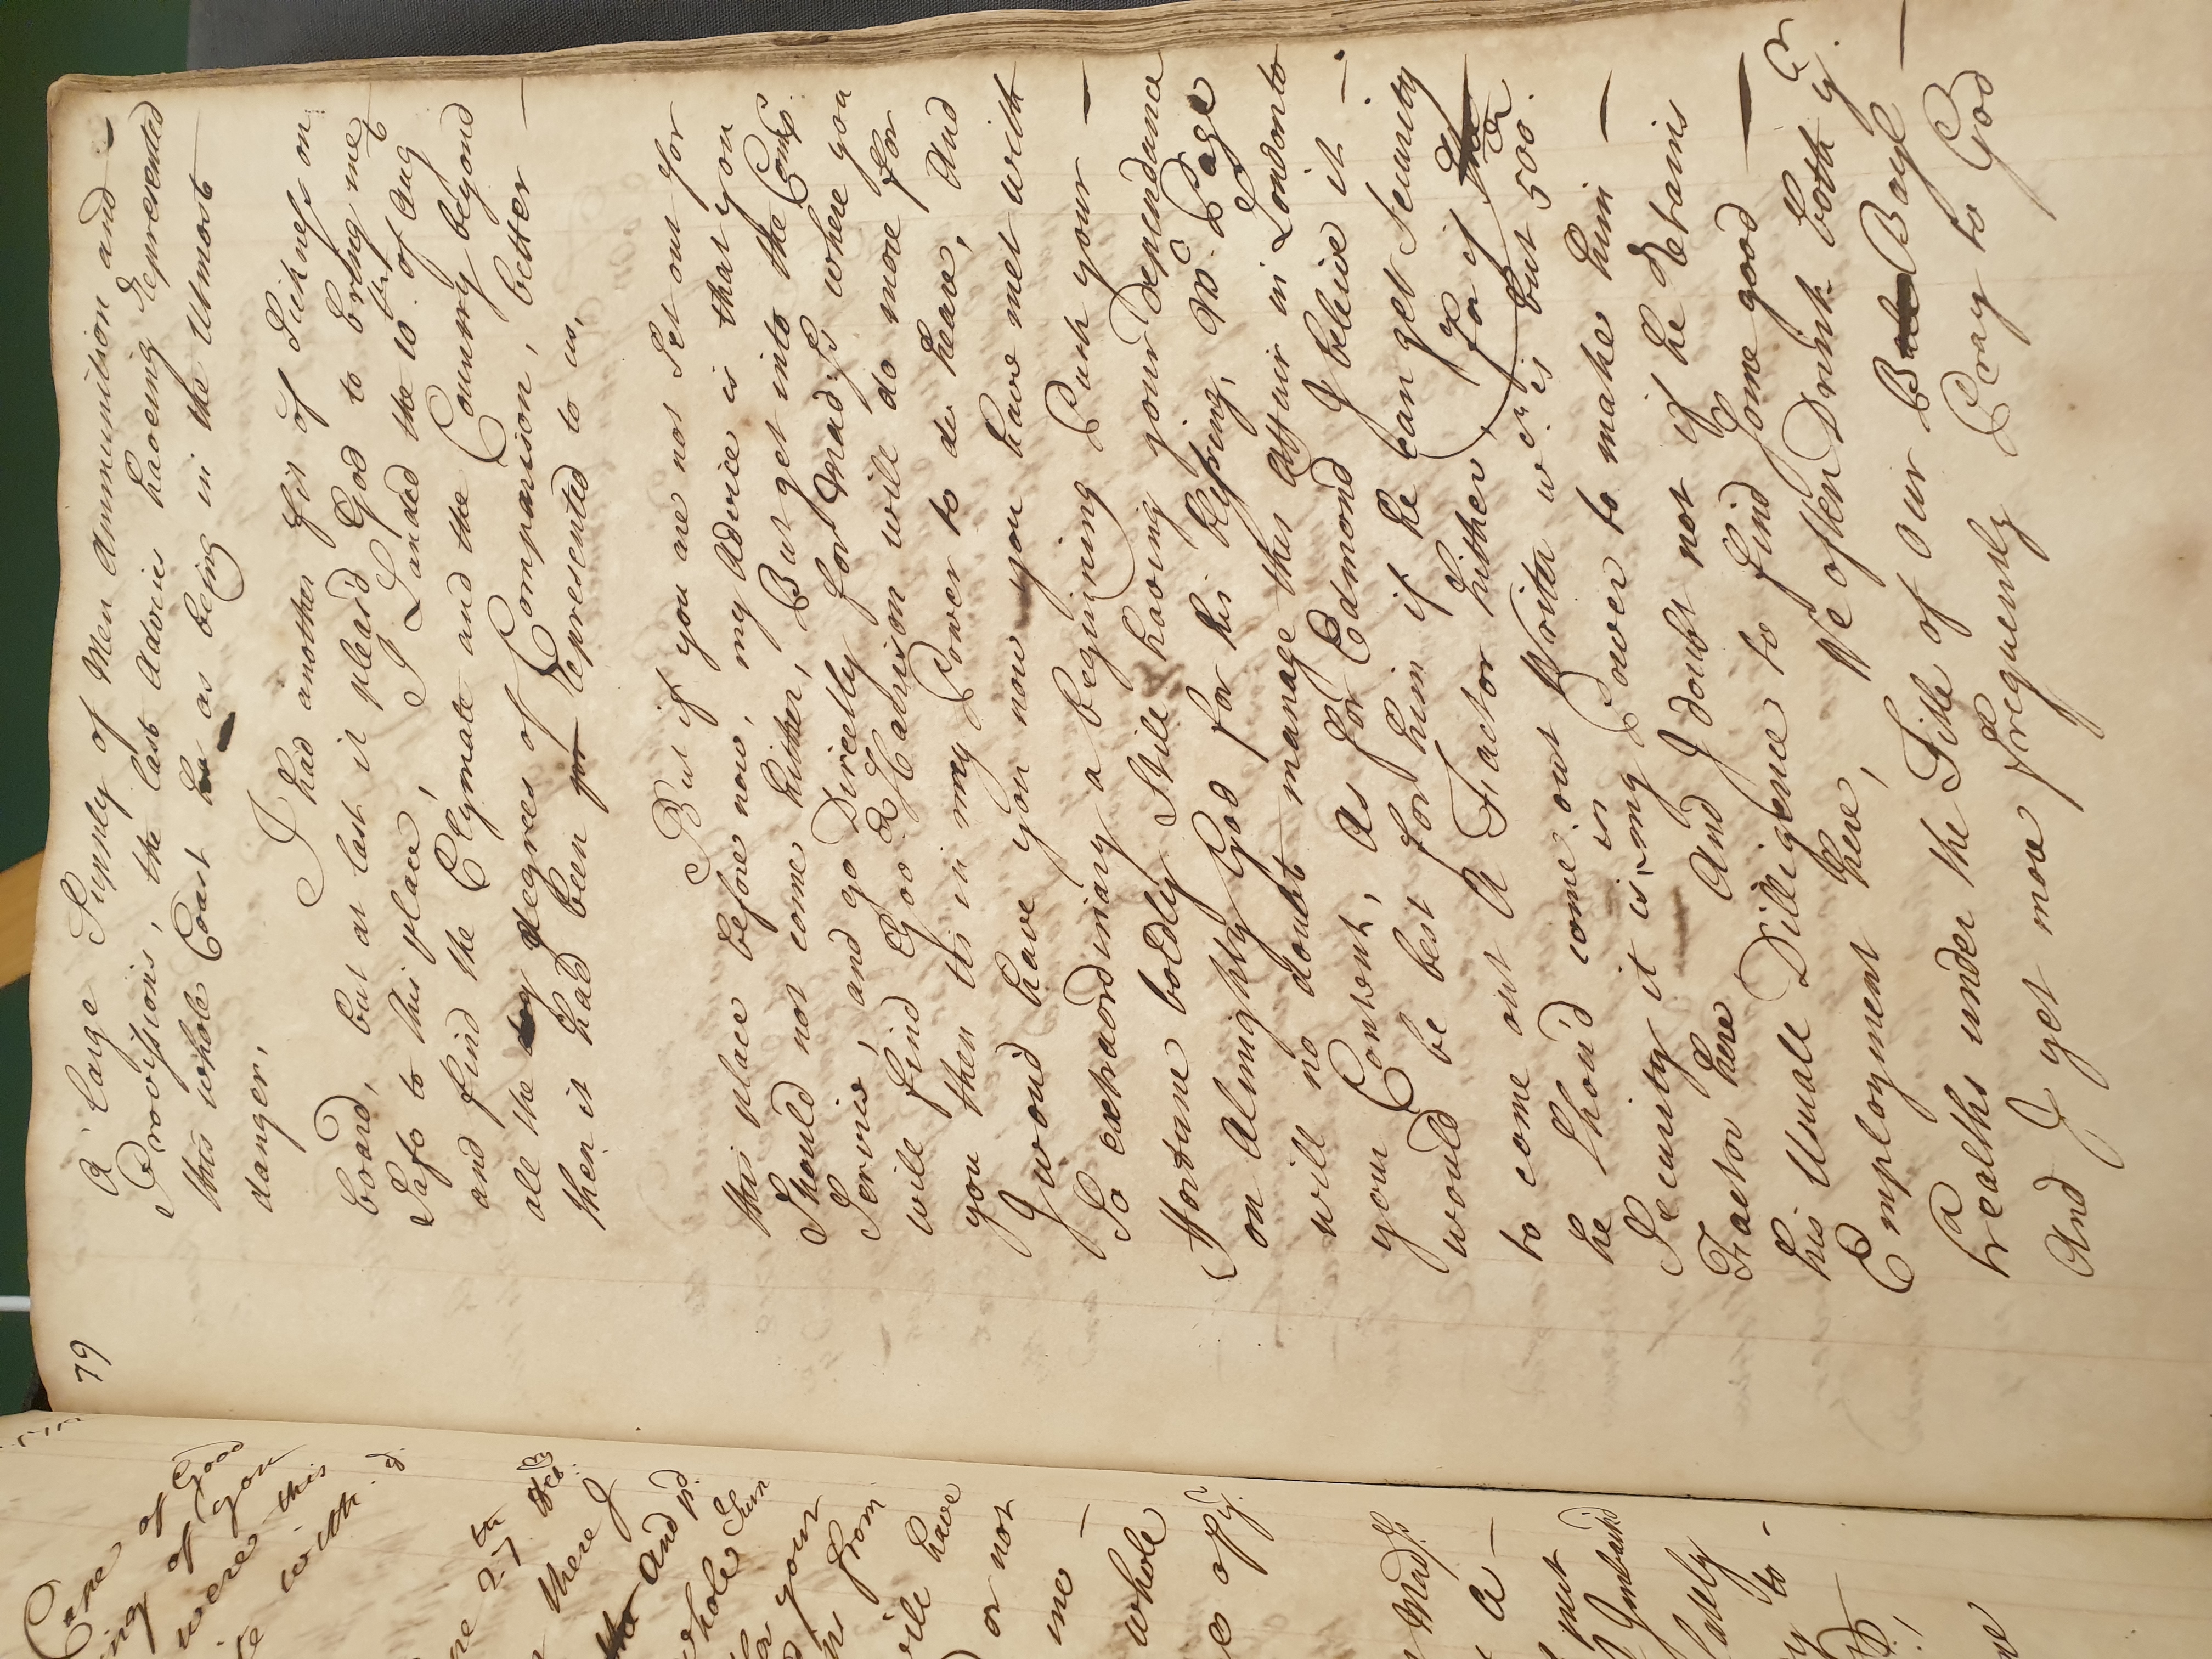 79
A large Supply of Men Ammunition and —
Provissions, the last Advice haveing represented
this whole Coast as being in the Utmost
danger,
I had another fit of Sickness on
board, but at last it pleas'd God to bring me
Safe to this place, I Landed the 10th of Aug
and find the Clymate and the Country beyond
all the degrees of Comparison, better —
then it had been represented to us,
But if you are not Set out for
this place before now, my Advice is that you
Should not come hither, But get into the Comps.
Servis, and go Directly for Madrss where you
will find Good Harrison will do more for
you then tis in my Power to do heare, And
I woud have you now you have met with
So extraordinary a begining Push your —
Fortune boldly Still having your Dependance
on Almighty God for his blessing, Mr. Page
will no doubt manage this Affair in London to
your Content, As for Edmond I beleive it —
would be best for him if he can get Security
to come out A Factor hither, (For if
he Shou'd come out Writer wch is but 500
Security it is in my Power to make him —
Factor here And I doubt not if he Retains
his Usuall Dilligence to find Some good —
Employment here, We often Drink both yr
healths under the Title of Our Boys
And I yet more frequently Pray to God
Care of God
of you
were this
with
27th
there I
And pd
whole Sum
your
from
will have
or not
me —
whole
of yr
Madrss
A —
put
Imbarkd
lately
to -